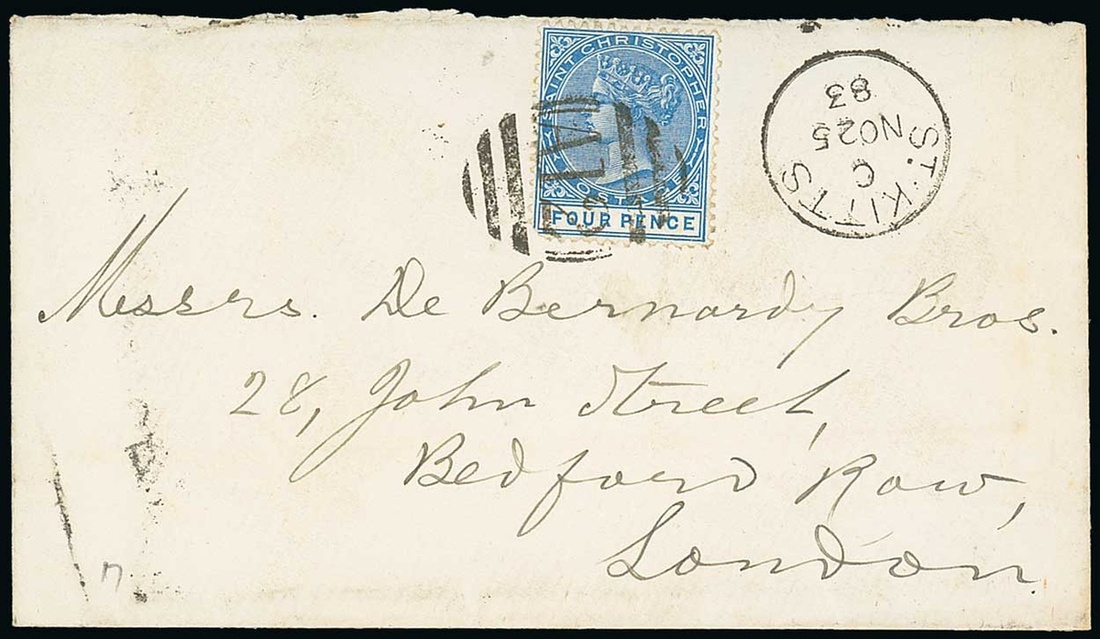 SAINT CHRISTOPHER
POSTAGE
FOUR PENCE
A12
ST. KITTS
C
NO 25
83
Messrs. De Bernardy Bros.
28, John Street,
Bedford Row,
London.